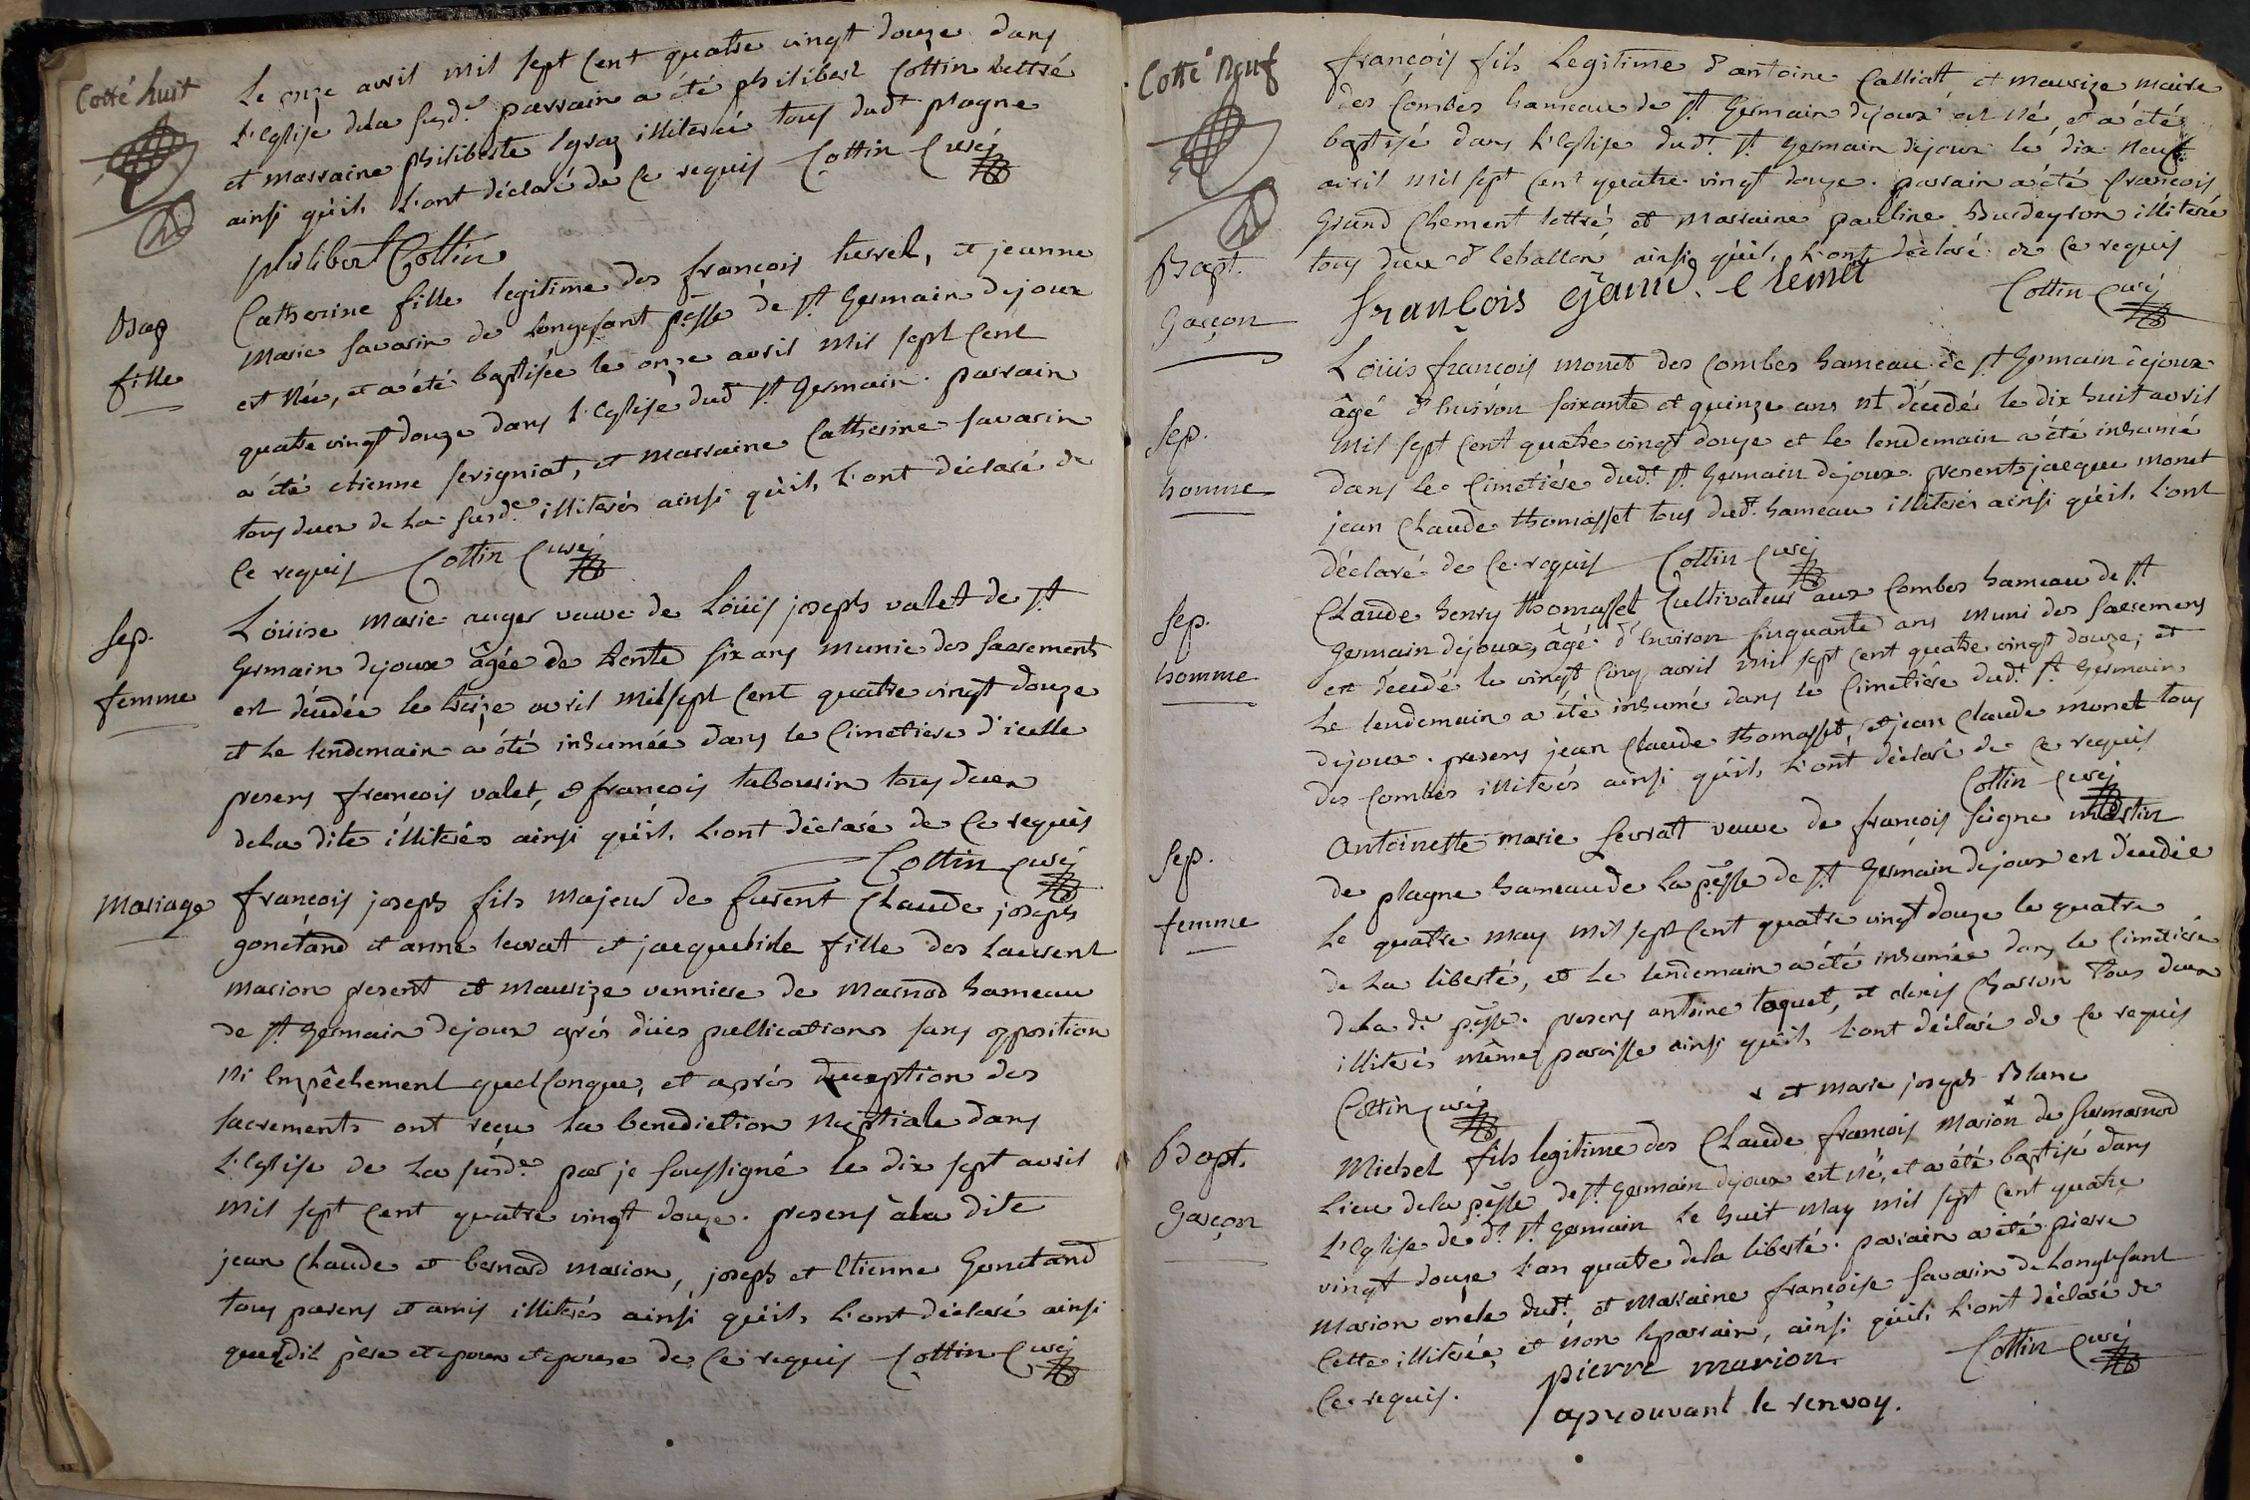 Cotté huit
Le onze avril mil sept cent quatre vingt douze dans
L'Eglise dela susd.e parrain a été philibert Cottin lettré
et marraine philiberte illiterée tous dud.t plagne
ainsi qu'ils l'ont déclaré de ce requis Cottin Curé
philibert Cottin
Bap
fille
Catherine fille legitime des francois terrel, et jeanne
Marie savarin de Longefant p.sse de s.t Germain dejoux
est née, et a été baptisée le onze avril mil sept cent
quatre vingt douze dans L'Eglise dud s.t Germain. parrain
a été étienne, et marraine Catherine savarin
tous deux de La susd.e illiterés ainsi qu'ils l'ont déclaré de
ce requis Cottin Curé
Sep.
femme
Loüise Marie auger veuve de Loüis joseph valet de s.t
Germain dejoux âgée de trente six ans munie des sacrements
est décédée le treize avril mil sept cent quatre vingt douze
et Le lendemain a été inhumée dans le Cimetiere d'icelle
presens francois valet, et francois tabourin tous deux
dela dite illiterés ainsi qu'ils l'ont déclaré de ce requis
Cottin curé
Mariage
francois joseph fils majeur de furent Claude joseph
gonétand et anne levrat et jacqueline fille des Laurent
marion present et maurize venniere de marnod hameau
de s.t Germain dejoux après dües publications sans opposition
ni Empêchement quelconque, et après reception des
sacrements ont reçu la benediction Nuptiale dans
L'Eglise de La susd.e par je soussigné le dix sept avril
mil sept cent quatre vingt douze. presens à la dite
jean Claude et bernard marion, joseph et Etienne Gonetand
tous parens et amis illiterés ainsi qu'ils l'ont déclaré ainsi
que dit père et epoux et epouse de ce requis Cottin Curé
Cotté Neuf
Bapt.
Garçon
françois fils Legitime d'antoine Calliatt et maurize maire
des Combes hameau de s.t Germain dejoux est né et a été
baptisé dans L'Eglise dud.t s.t Germain dejoux le dix Neuf
avril mil sept cent quatre vingt douze. parrain a été francois
Grand Clement lettré et marraine pauline Burdeyron illiterée
tous deux d'Echallon ainsi qu'ils l'ont déclaré de ce requis
françois Grand Clemet
Cottin curé
Sep.
homme
Loüis françois monet des combes hameau de s.t Germain dejoux
âgé d'Environ soixante et quinze ans est décédé le dix huit avril
mil sept cent quatre vingt douze et le lendemain a été inhumé
dans Le Cimetière dud.t s.t Germain dejoux. presents jacque monet
jean Claude thomasset tous dud.t hameau illiterés ainsi qu'ils l'ont
déclaré de ce requis Cottin curé
Sep.
homme
Claude henry thomasset Cultivateur aux Combes hameau de s.t
Germain dejoux, âgé d'Environ Cinquante ans muni des sacremens
est décédé le vingt Cinq avril mil sept cent quatre vingt douze, et
Le lendemain a été inhumé dans le Cimetière dud.t s.t Germain
dejoux. presens jean Claude thomasset, et jean Claude monet tous
des Combes illiterés ainsi qu'ils l'ont déclaré de ce requis
Cottin curé
Sep.
femme
Antoinette marie Levratt veuve de francois seigne martin
de plagne hameau de La p.sse de s.t Germain dejoux est décédée
Le quatre may mil sept cent quatre vingt douze le quatre
de La liberté, et Le lendemain a été inhumée dans le Cimetière
dela d.e p.sse. presens antoine taquet, et denis Charson tous deux
illiterés même paroisse ainsi qu'ils l'ont déclaré de ce requis
Cottin curé
x et marie joseph Blanc
Bapt.
Garçon
Michel fils legitime des Claude francois Marion x de surmarnod
Lieu dela p.sse de s.t Germain dejoux est né, et a été baptisé dans
L'Eglise de d.t s.t Germain Le huit may mil sept cent quatre
vingt douze l'an quatre dela liberté. parrain a été pierre
Marion oncle dud.t et marraine francoise Savarin de Longefant
Cette illiterée, et non le parrain, ainsi qu'ils l'ont déclaré de
ce requis.
pierre marion
Cottin curé
aprouvant le renvoy.